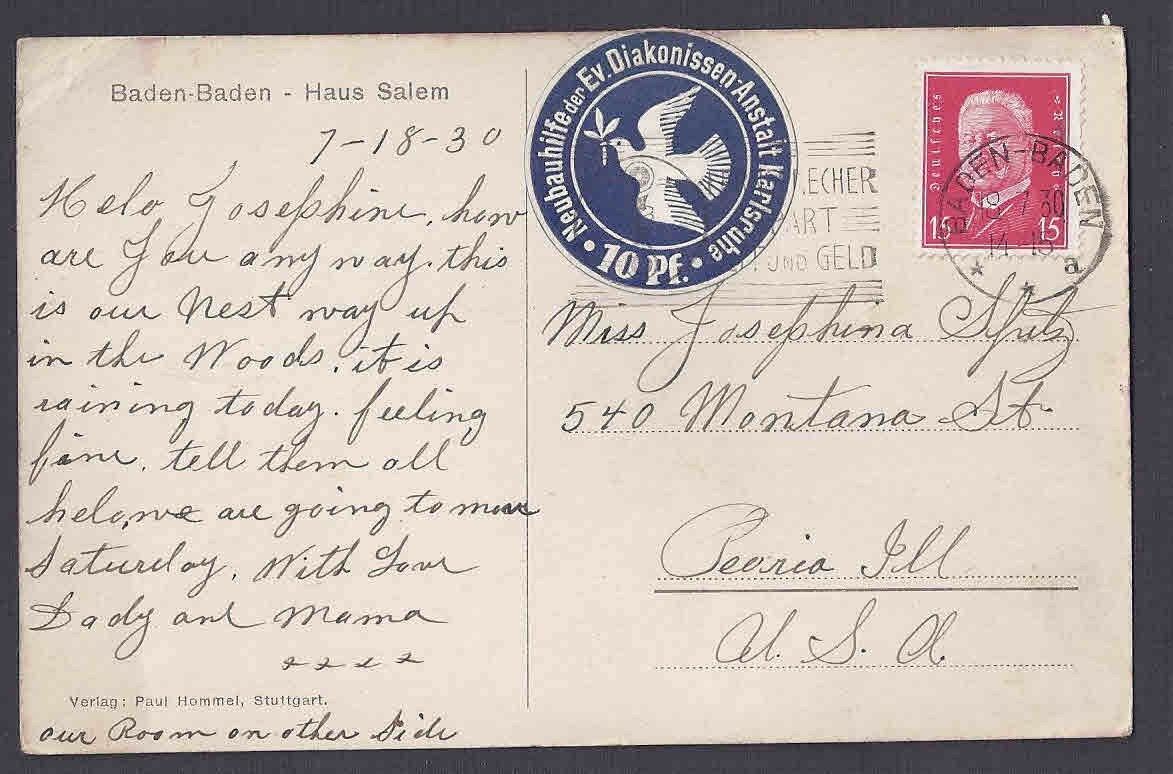 Baden-Baden - Haus Salem
7-18-30
Helo Josephine, how
are you any way. this
is our Nest way up
in the Woods. it is
raining today. feeling
fine. tell them all
helo, we are going to move
Saturday. With Love
Dady and Mama
x x x x
Verlag: Paul Hommel, Stuttgart.
our Room on other Side
Neubauhilfe der Ev. Diakonissen-Anstalt Karlsruhe
• 10 Pf. •
ECHER
ART
UND GELD
Deutsches
15 15
BADEN-BADEN
18.7.30
14-15
* * a
Miss Josephina Spitz
540 Montana St.
Peoria Ill
U. S. A.